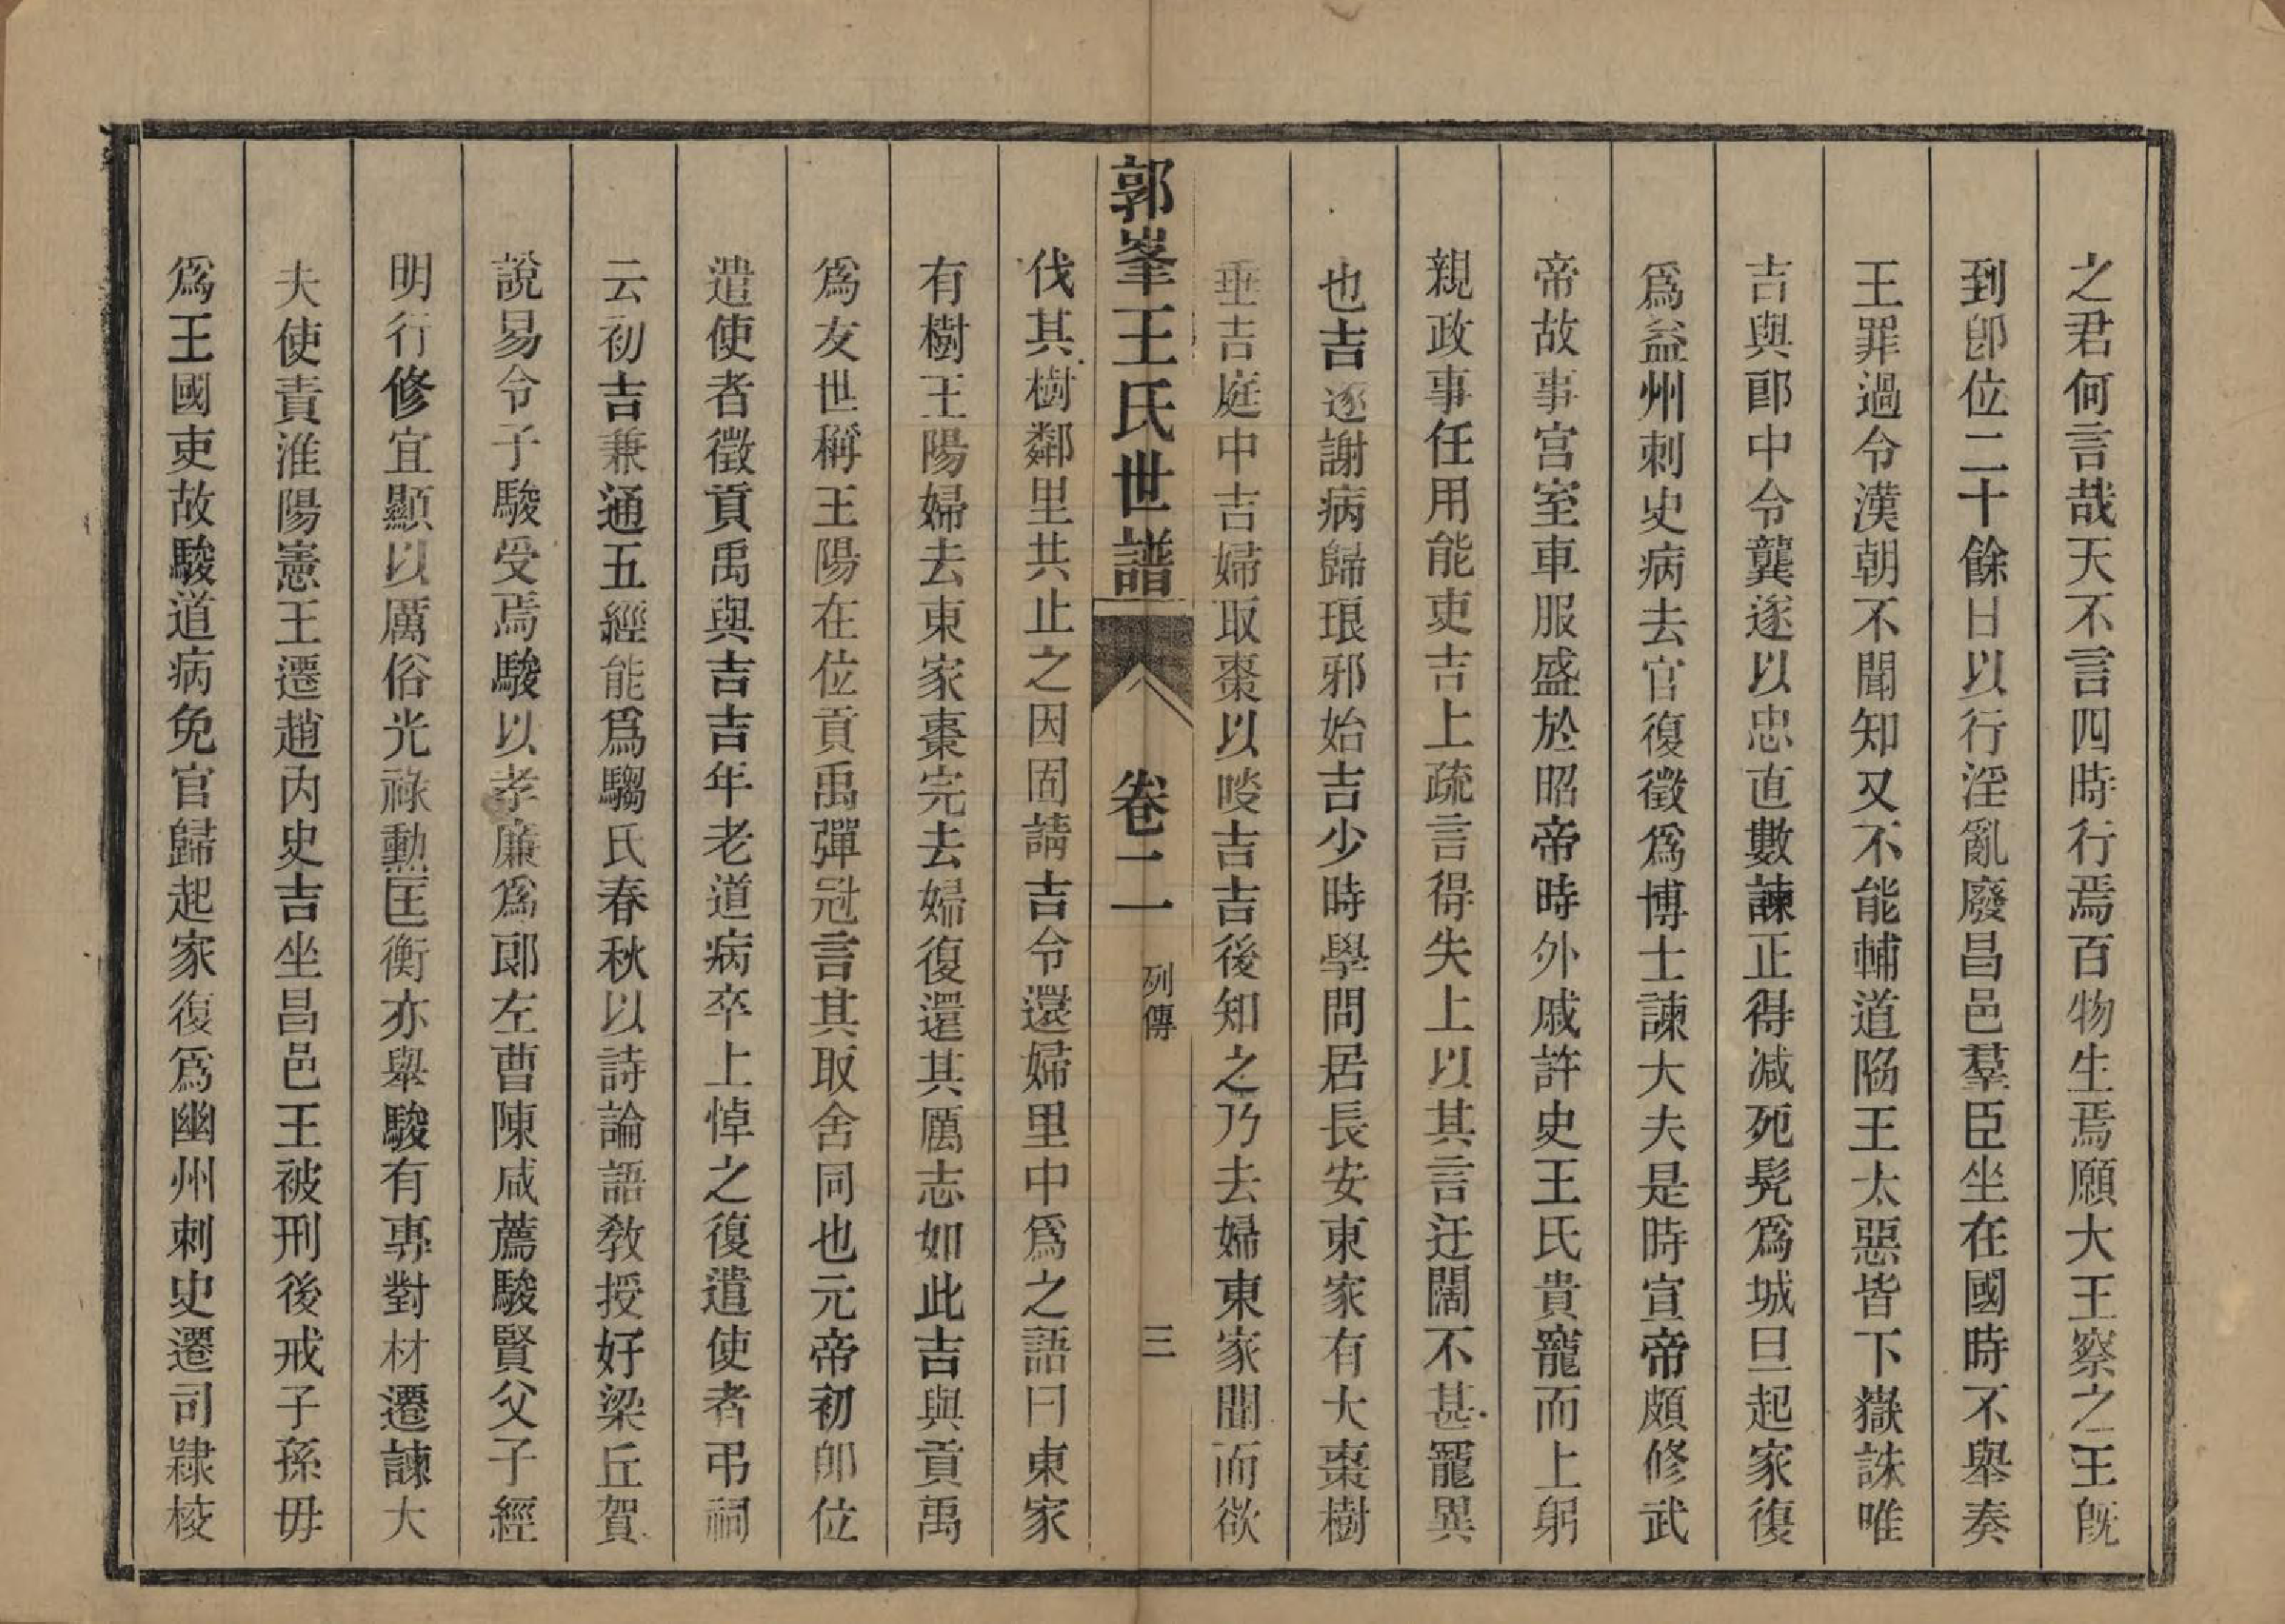 之君何言哉天不言四時行焉百物生焉願大王察之王既
到卽位二十餘日以行淫亂廢昌邑羣臣坐在國時不舉奏
王罪過令漢朝不聞知又不能輔道陷王大惡皆下獄誅唯
吉與郎中令龔遂以忠直數諫正得减死髡爲城旦起家復
爲益州刺史病去官復徵爲博士諫大夫是時宣帝頗修武
帝故事宫室車服盛於昭帝時外戚許史王氏貴寵而上躬
親政事任用能吏吉上疏言得失上以其言迂闊不甚寵異
也吉遂謝病歸琅邪始吉少時學問居長安東家有大棗樹
垂吉庭中吉婦取棗以啖吉吉後知之乃去婦東家聞而欲
郭峯王氏世譜 卷二 列傳 三
伐其樹鄰里共止之因固請吉令還婦里中爲之語曰東家
有樹王陽婦去東家棗完去婦復還其厲志如此吉與貢禹
爲友世稱王陽在位貢禹彈冠言其取舍同也元帝初卽位
遣使者徵貢禹與吉吉年老道病卒上悼之復遣使者弔祠
云初吉兼通五經能爲騶氏春秋以詩論語敎授好梁丘賀
說易令子駿受焉駿以孝廉爲郎左曹陳咸薦駿賢父子經
明行修宜顯以厲俗光祿勲匡衡亦舉駿有專對材遷諫大
夫使責淮陽憲王遷趙内史吉坐昌邑王被刑後戒子孫毋
爲王國吏故駿道病免官歸起家復爲幽州刺史遷司隸校